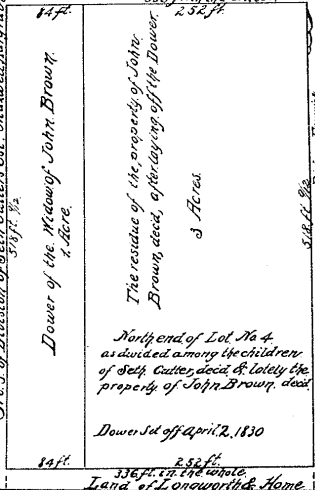 84 ft.
252 ft.
Dower of the Widow of John Brown.
1. Acre.
The residue of the property of John
Brown, decd, after laying off the Dower.
3 Acres.
518 ft. 9/12
518 ft. 9/12
North end of Lot No 4
as divided among the children
of Seth Cutter, decd, & lately the
property of John Brown, decd.
Dower Set off April 2, 1830
84 ft.
252 ft.
336 ft. in the whole.
Land of Longworth & Home